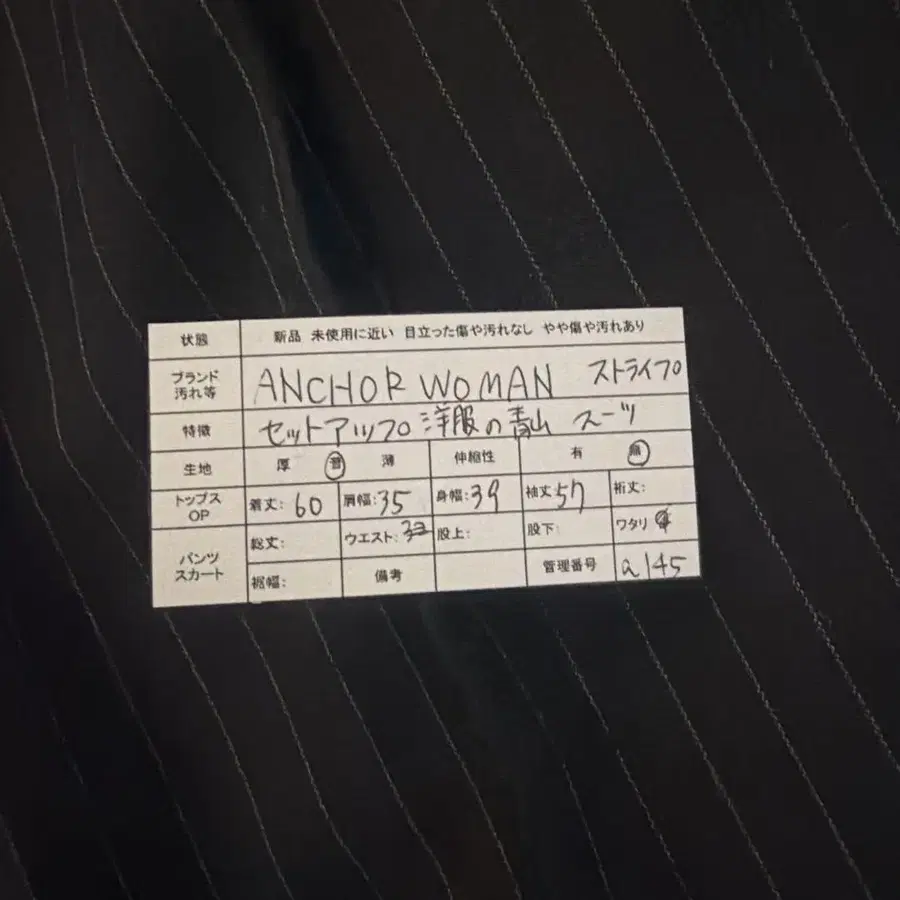 状態 新品 未使用に近い 目立った傷や汚れなし やや傷や汚れあり
ブランド 汚れ等 ANCHOR WOMAN ストライプ
特徴 セットアップ 洋服の青山 スーツ
生地 厚 普 薄 伸縮性 有 無
トップス OP 着丈: 60 肩幅: 35 身幅: 39 袖丈 57 裄丈:
パンツ スカート 総丈: ウエスト: 股上: 股下: ワタリ
裾幅: 備考 管理番号 a145